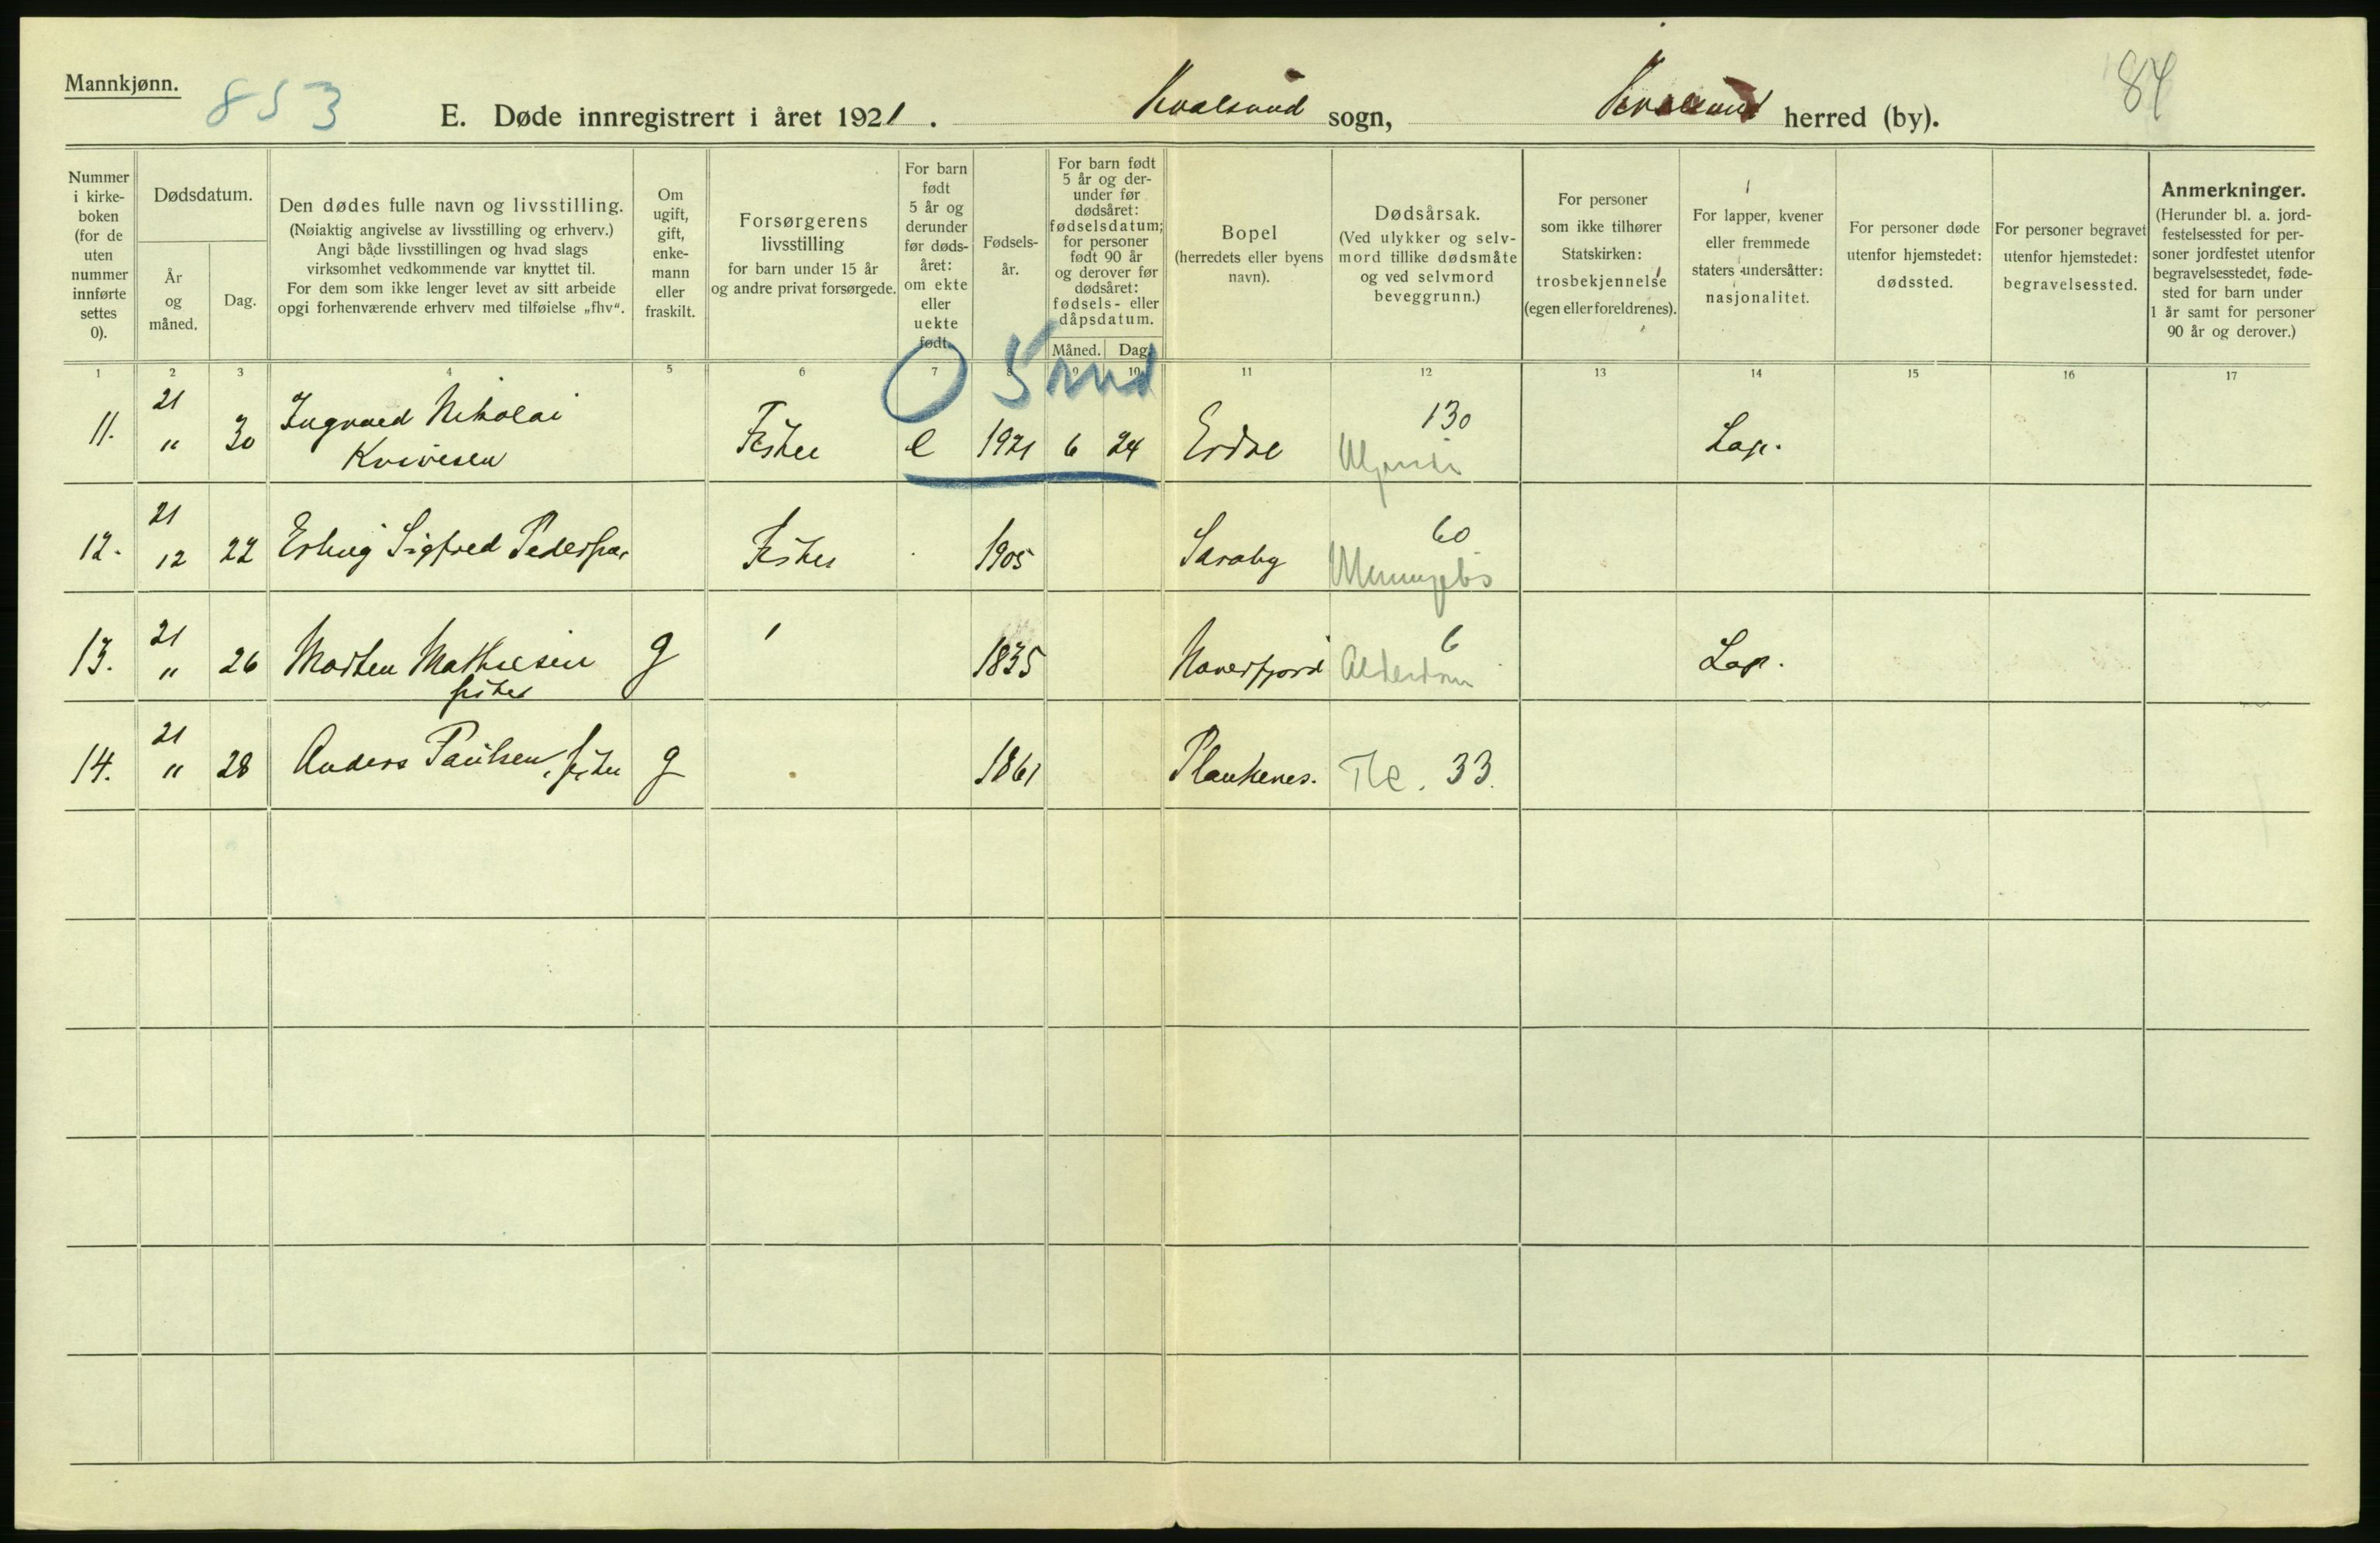 Mannkjønn.
853
84
E. Døde innregistrert i året 1921. Kvalsund sogn, Kvalsund herred (by).
Nummer i kirke-boken (for de uten nummer innførte settes 0).
Dødsdatum.
År og måned.
Dag.
Den dødes fulle navn og livsstilling.
(Nøiaktig angivelse av livsstilling og erhverv.)
Angi både livsstillingen og hvad slags
virksomhet vedkommende var knyttet til.
For dem som ikke lenger levet av sitt arbeide
opgi forhenværende erhverv med tilføielse „fhv“.
Om ugift, gift, enke-mann eller fraskilt.
Forsørgerens
livsstilling
for barn under 15 år
og andre privat forsørgede.
For barn født 5 år og derunder før døds-året: om ekte eller uekte født.
Fødsels-år.
For barn født 5 år og der-under før dødsåret: fødselsdatum; for personer født 90 år og derover før dødsåret: fødsels- eller dåpsdatum.
Måned.
Dag.
Bopel
(herredets eller byens
navn).
Dødsårsak.
(Ved ulykker og selv-
mord tillike dødsmåte
og ved selvmord
beveggrunn.)
For personer
som ikke tilhører
Statskirken:
trosbekjennelse
(egen eller foreldrenes).
For lapper, kvener
eller fremmede
staters undersåtter:
nasjonalitet.
For personer døde
utenfor hjemstedet:
dødssted.
For personer begravet
utenfor hjemstedet:
begravelsessted.
Anmerkninger.
(Herunder bl. a. jord-
festelsessted for per-
soner jordfestet utenfor
begravelsesstedet, føde-
sted for barn under
1 år samt for personer
90 år og derover.)
1 2 3 4 5 6 7 8 9 10 11 12 13 14 15 16 17
0 5 mnd
11. 21 " 30 Ingvard Nikolai Fisker e 1921 6 24 130 Lap.
12. 21 12 22 Erling Sigfred Pedersen Fisker 1905 Saraby 60
13. 21 " 26 Morten Mathisen fisker g 1835 6 Alderdom Lap.
14. 21 " 28 Anders Paulsen, fisker g 1861 Plankenes. Tbc. 33.